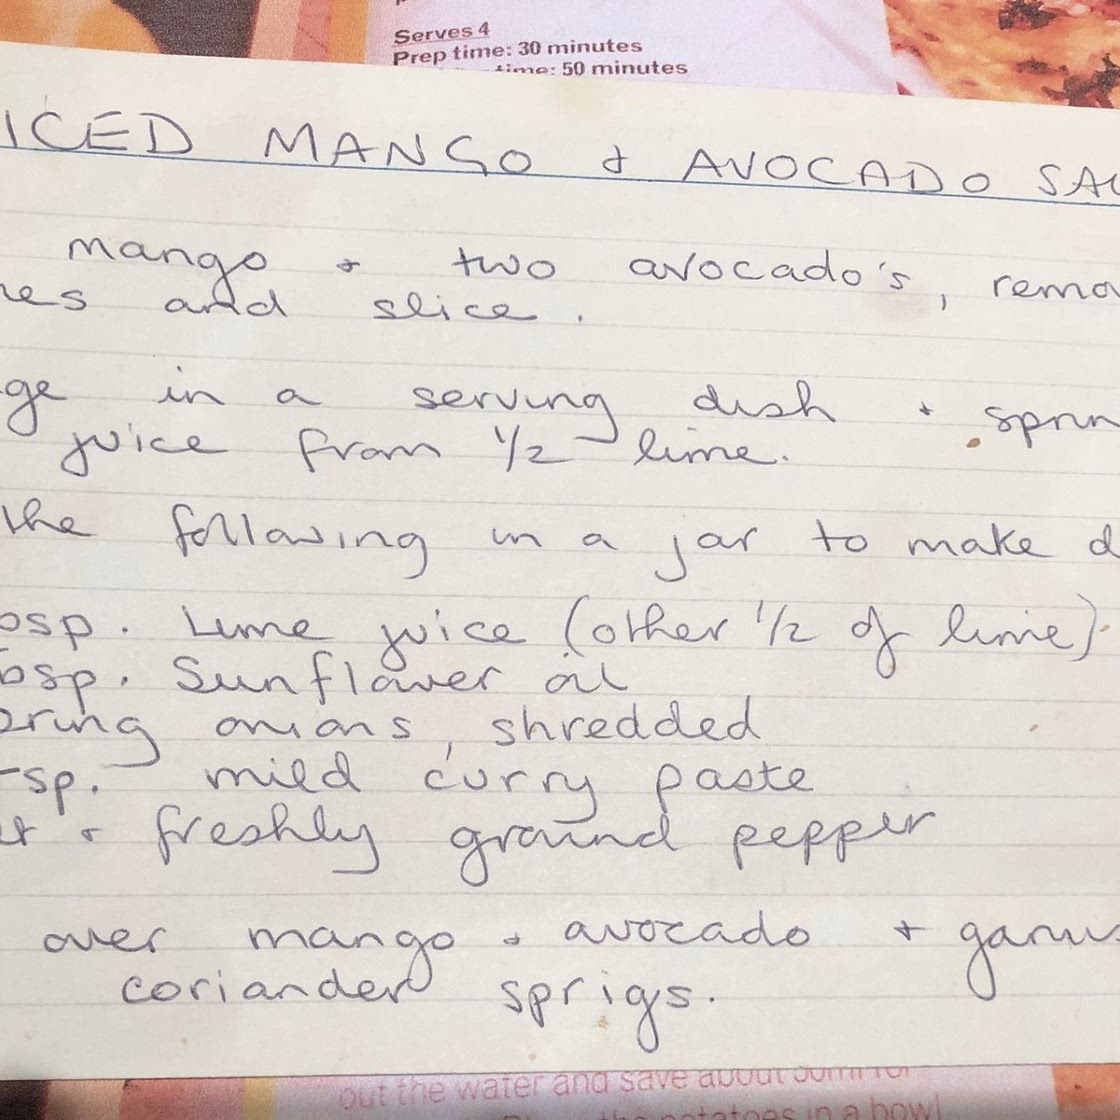 Serves 4
Prep time: 30 minutes
time: 50 minutes
ICED MANGO + AVOCADO SAL
mango + two avocado's, remo
nes and slice.
ge in a serving dish + sprin
juice from 1/2 lime.
the following in a jar to make d
bsp. Lime juice (other 1/2 of lime).
bsp. Sunflower oil
pring onions, shredded
tsp. mild curry paste
lt + freshly ground pepper
over mango + avocado + garnis
coriander sprigs.
out the water and save about 50ml for
the potatoes in a bowl